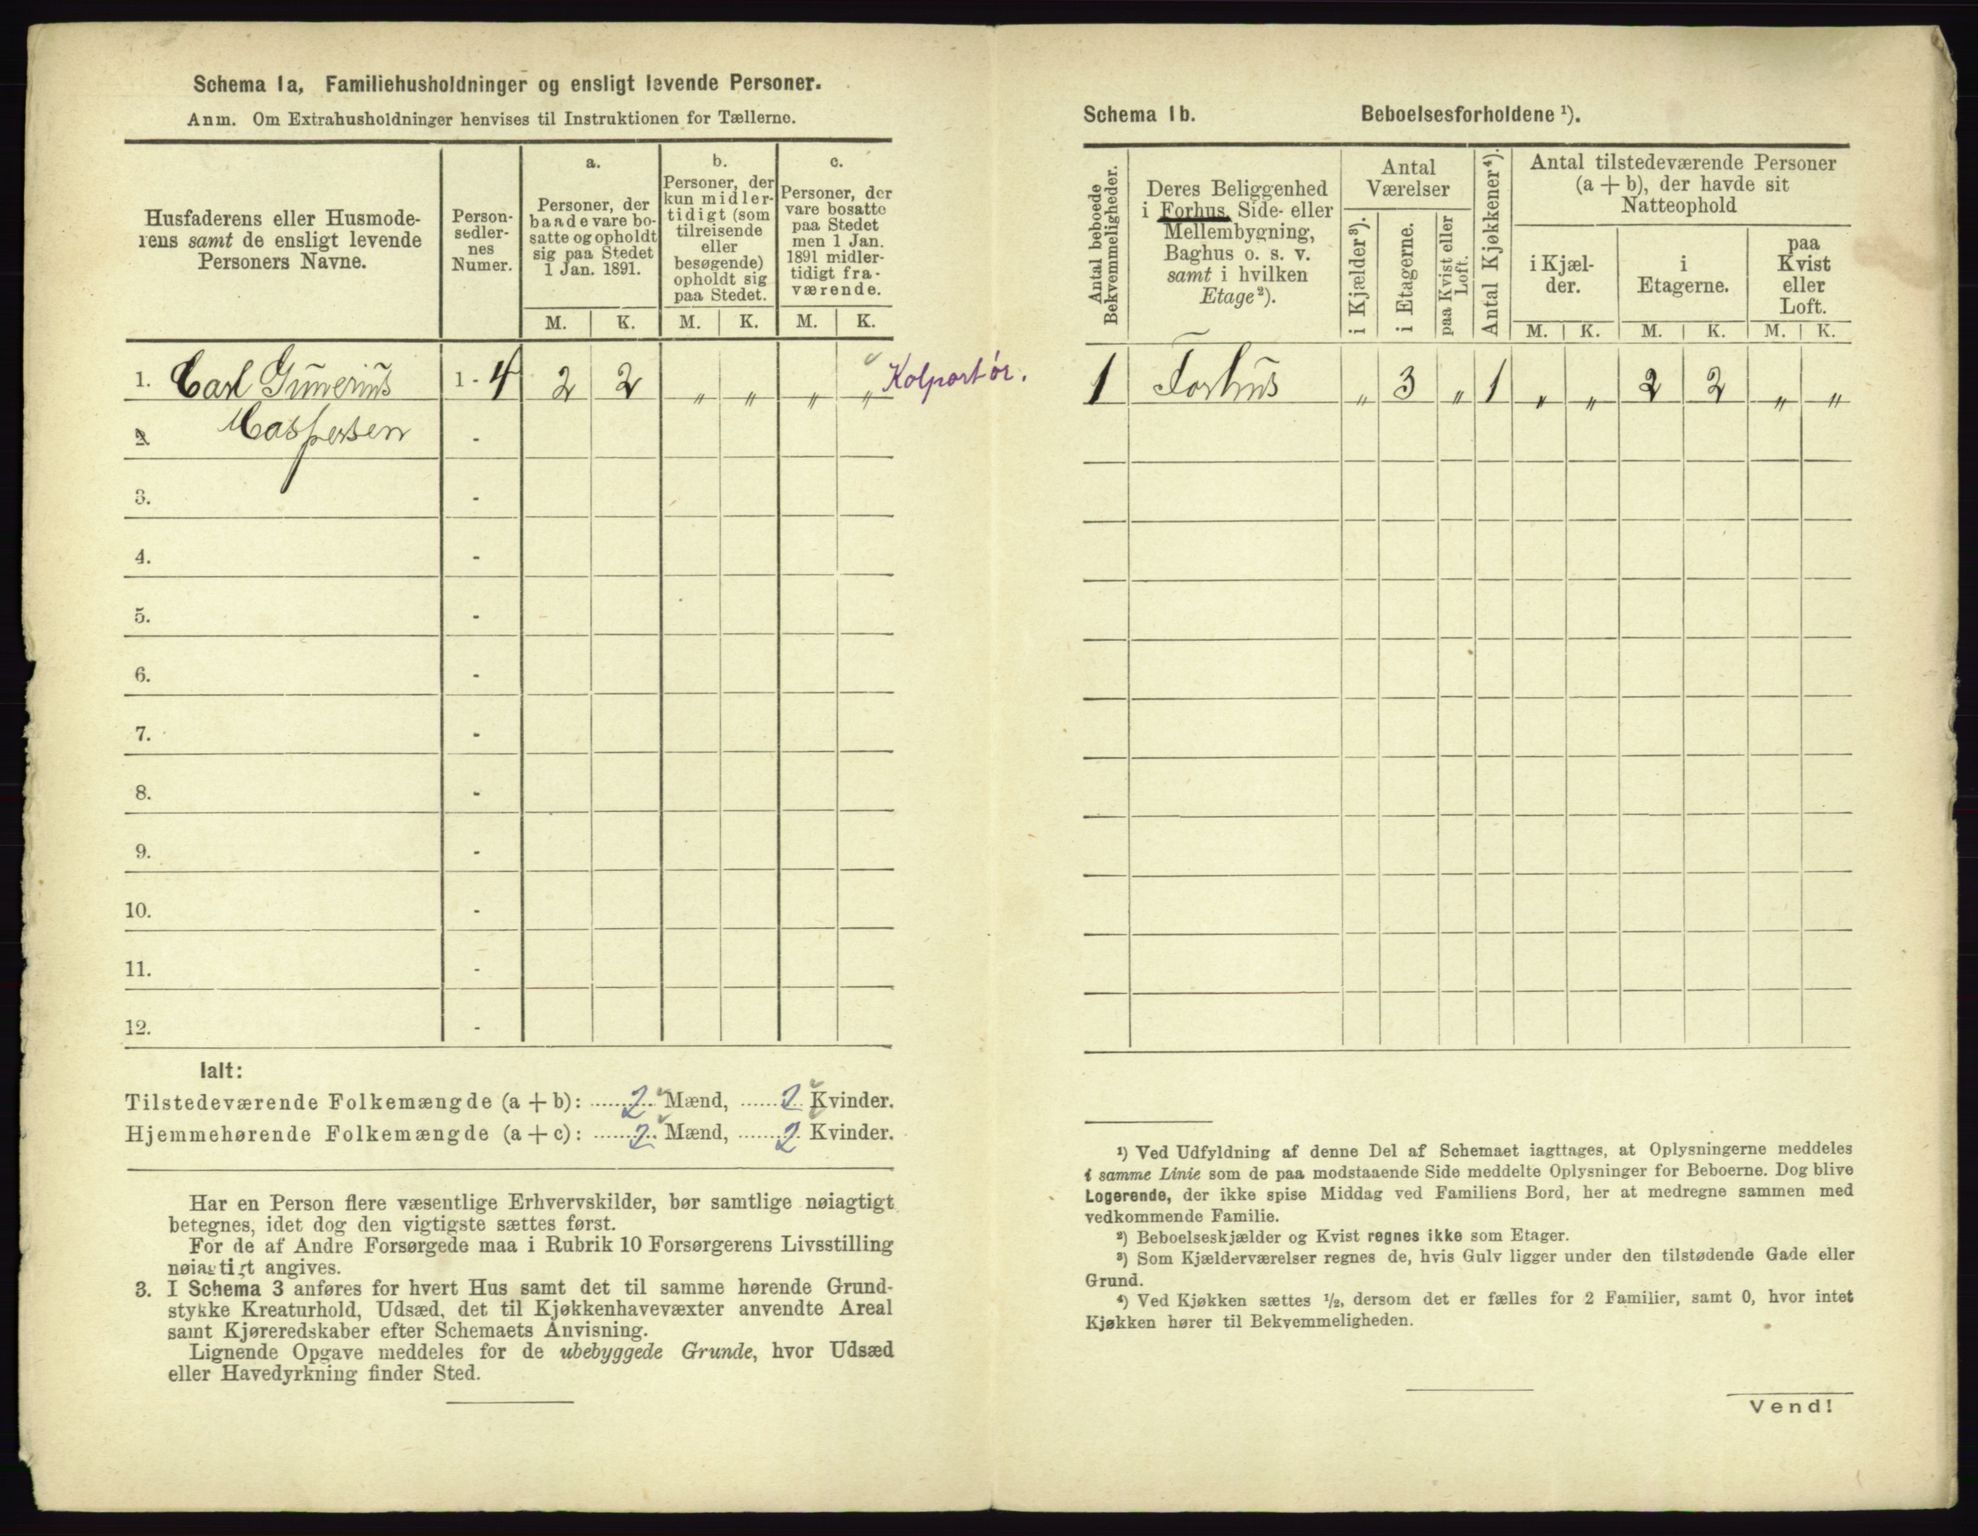 Schema 1a, Familiehusholdninger og ensligt levende Personer.
Anm. Om Extrahusholdninger henvises til Instruktionen for Tællerne.
Husfaderens eller Husmode-
rens samt de ensligt levende
Personers Navne.
Person-
sedler-
nes
Numer.
a.
Personer, der
baade vare bo-
satte og opholdt
sig paa Stedet
1 Jan. 1891.
b.
Personer, der
kun midler-
tidigt (som
tilreisende
eller
besøgende)
opholdt sig
paa Stedet.
c.
Personer, der
vare bosatte
paa Stedet
men 1 Jan.
1891 midler-
tidigt fra-
værende.
M. K. M. K. M. K.
1. Carl Gunerius 1 - 4 2 2 „ „ „ „ Kolportør.
2 Caspersen -
3. -
4. -
5. -
6. -
7. -
8. -
9. -
10. -
11. -
12. -
Ialt:
Tilstedeværende Folkemængde (a + b): 2 Mænd, 2 Kvinder.
Hjemmehørende Folkemængde (a + c): 2 Mænd, 2 Kvinder.
Har en Person flere væsentlige Erhvervskilder, bør samtlige nøiagtigt
betegnes, idet dog den vigtigste sættes først.
For de af Andre Forsørgede maa i Rubrik 10 Forsørgerens Livsstilling
nøiagtigt angives.
3. I Schema 3 anføres for hvert Hus samt det til samme hørende Grund-
stykke Kreaturhold, Udsæd, det til Kjøkkenhavevæxter anvendte Areal
samt Kjøreredskaber efter Schemaets Anvisning.
Lignende Opgave meddeles for de ubebyggede Grunde, hvor Udsæd
eller Havedyrkning finder Sted.
Schema 1b. Beboelsesforholdene ¹).
Antal beboede
Bekvemmeligheder.
Deres Beliggenhed
i Forhus, Side- eller
Mellembygning,
Baghus o. s. v.
samt i hvilken
Etage²).
Antal
Værelser
i Kjælder³).
i Etagerne.
paa Kvist eller
Loft.
Antal Kjøkkener⁴).
Antal tilstedeværende Personer
(a + b), der havde sit
Natteophold
i Kjæl-
der.
i
Etagerne.
paa
Kvist
eller
Loft.
M. K. M. K. M. K.
1 Forhus „ 3 „ 1 „ „ 2 2 „ „
¹) Ved Udfyldning af denne Del af Schemaet iagttages, at Oplysningerne meddeles
i samme Linie som de paa modstaaende Side meddelte Oplysninger for Beboerne. Dog blive
Logerende, der ikke spise Middag ved Familiens Bord, her at medregne sammen med
vedkommende Familie.
²) Beboelseskjælder og Kvist regnes ikke som Etager.
³) Som Kjælderværelser regnes de, hvis Gulv ligger under den tilstødende Gade eller
Grund.
⁴) Ved Kjøkken sættes ½, dersom det er fælles for 2 Familier, samt 0, hvor intet
Kjøkken hører til Bekvemmeligheden.
Vend!